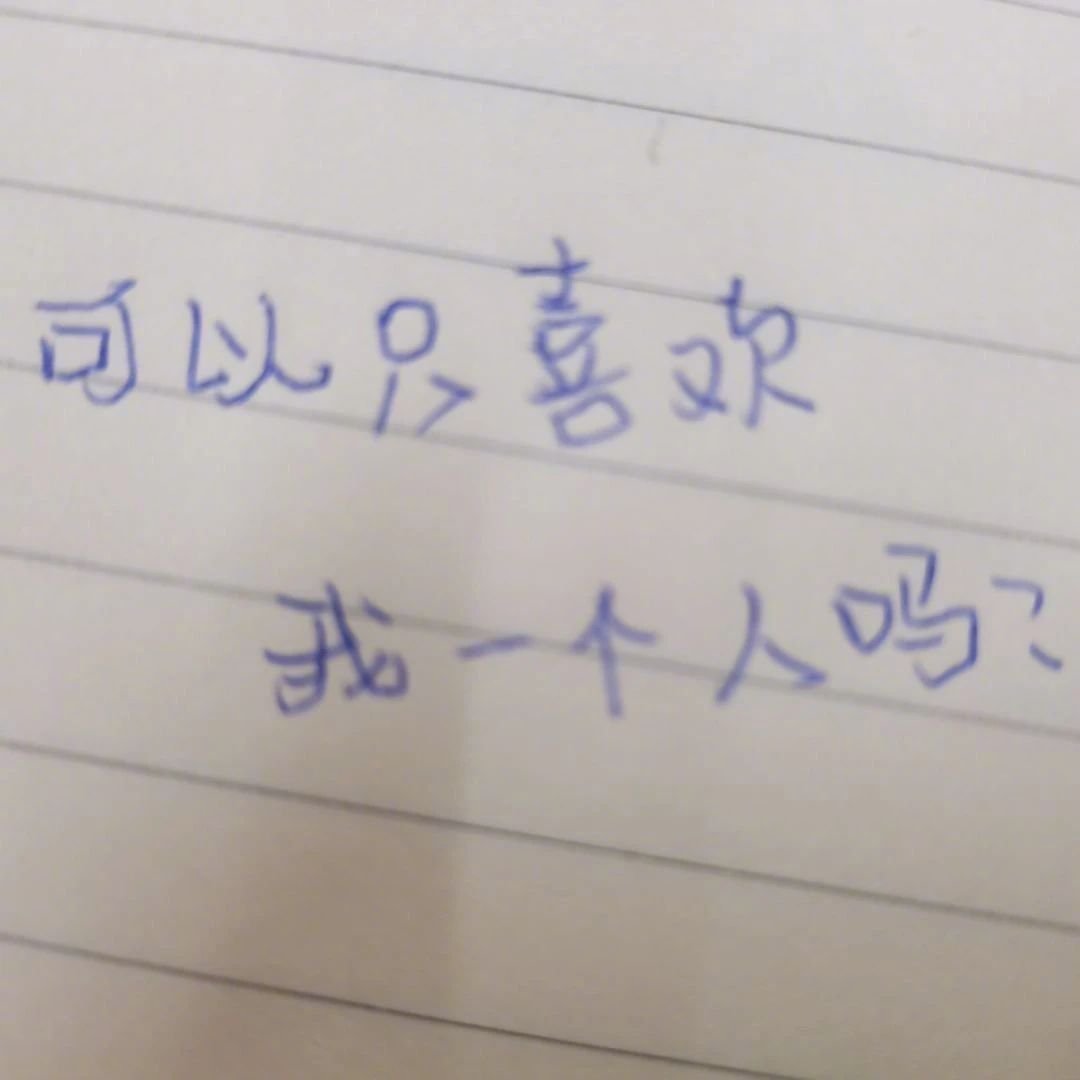 可以只喜欢
我一个人吗?